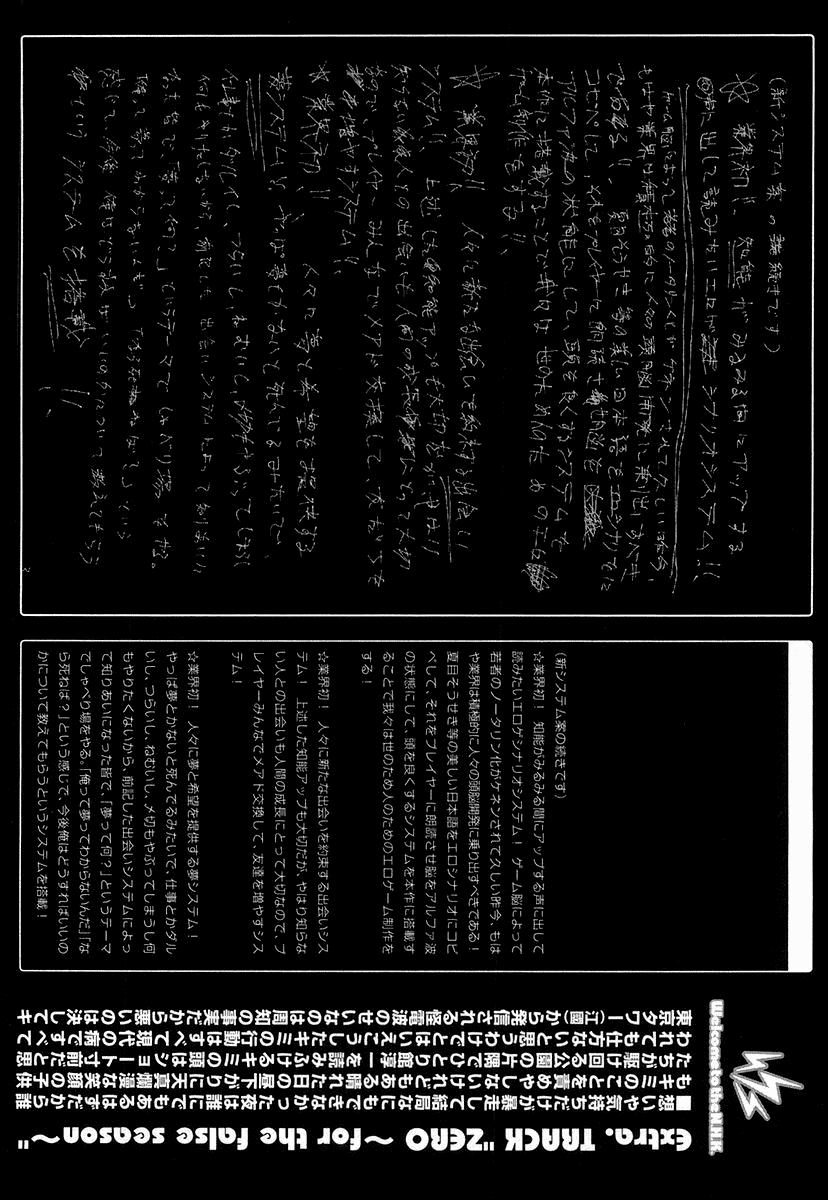 (新システム案の続きです)
☆業界初!! 知能がみるみる間にアップする
声に出して読みたいエロゲシナリオシステム!!
ゲーム脳によって若者のノータリン化がケネンされて久しい昨今、
もはや業界は積極的に人々の頭脳開発に乗り出すべき
である!! 夏目そうせき等の美しい日本語をエロシナリオに
コピペして、それをプレイヤーに朗読させ脳を
アルファ波の状態にして、頭を良くするシステムを
本作に搭載することで我々は世のため人のためのエロ
ゲーム制作をする!!
☆業界初!! 人々に新たな出会いを約束する出会い
システム!! 上述した知能アップも大切だが、やはり
知らない人との出会いも人間の成長にとって大切
なので、プレイヤーみんなでメアド交換して、友だちを
増やすシステム!!
☆業界初!! 人々に夢と希望を提供する
夢システム!! やっぱ夢とかないと死んでるみたいで、
仕事とかダルイし、つらいし、ねむいし、〆切もやぶってしまうし
何もやりたくないから、前記した出会いシステムによって知りあいに
なった皆で、「夢って何?」というテーマでしゃべり場をやる。
「俺って夢ってわからないんだ」「なら死ねば?」という
感じで、今後俺はどうすればいいのかについて教えてもらう
というシステムを搭載!!
(新システム案の続きです)
☆業界初! 知能がみるみる間にアップする声に出して
読みたいエロゲシナリオシステム! ゲーム脳によって
若者のノータリン化がケネンされて久しい昨今、もは
や業界は積極的に人々の頭脳開発に乗り出すべきである!
夏目そうせき等の美しい日本語をエロシナリオにコピ
ペして、それをプレイヤーに朗読させ脳をアルファ波
の状態にして、頭を良くするシステムを本作に搭載す
ることで我々は世のため人のためのエロゲーム制作を
する!
☆業界初! 人々に新たな出会いを約束する出会いシス
テム! 上述した知能アップも大切だが、やはり知らな
い人との出会いも人間の成長にとって大切なので、プ
レイヤーみんなでメアド交換して、友達を増やすシス
テム!
☆業界初! 人々に夢と希望を提供する夢システム!
やっぱ夢とかないと死んでるみたいで、仕事とかダル
いし、つらいし、ねむいし、〆切もやぶってしまうし何
もやりたくないから、前記した出会いシステムによっ
て知りあいになった皆で、「夢って何?」というテーマ
でしゃべり場をやる。「俺って夢ってわからないんだ」「な
ら死ねば?」という感じで、今後俺はどうすればいいの
かについて教えてもらうというシステムを搭載!
Welcome to the N.H.K.
extra. TRACK "ZERO ~for the false season~"
■想いや気持ちだけが暴走して結局なにもできなかった夜は誰にでもあるはずだから誰
もキミのことを責めやしないけれどもある晴れた日の昼下がりに天真爛漫な笑顔の子供
たちが駆け回る公園の片隅でひとり読みふけるキミの頭はショート寸前だと思
われても仕方ないと思うわけでとはいえこうしたキミの行動はすべて現代の病ですべて
東京タワーから発信される怪電波のせいなのは周知の事実だから悪いのは決してキ